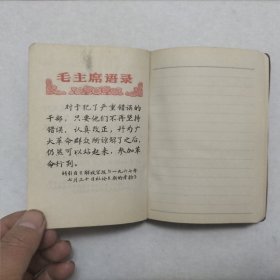 毛主席语录
对于犯了严重错误的
干部，只要他们不再坚持
错误，认真改正，并为广
大革命群众所谅解了之后，
仍然可以站起来，参加革
命行列。
转引自《解放军报》一九六七年
七月三十日社论